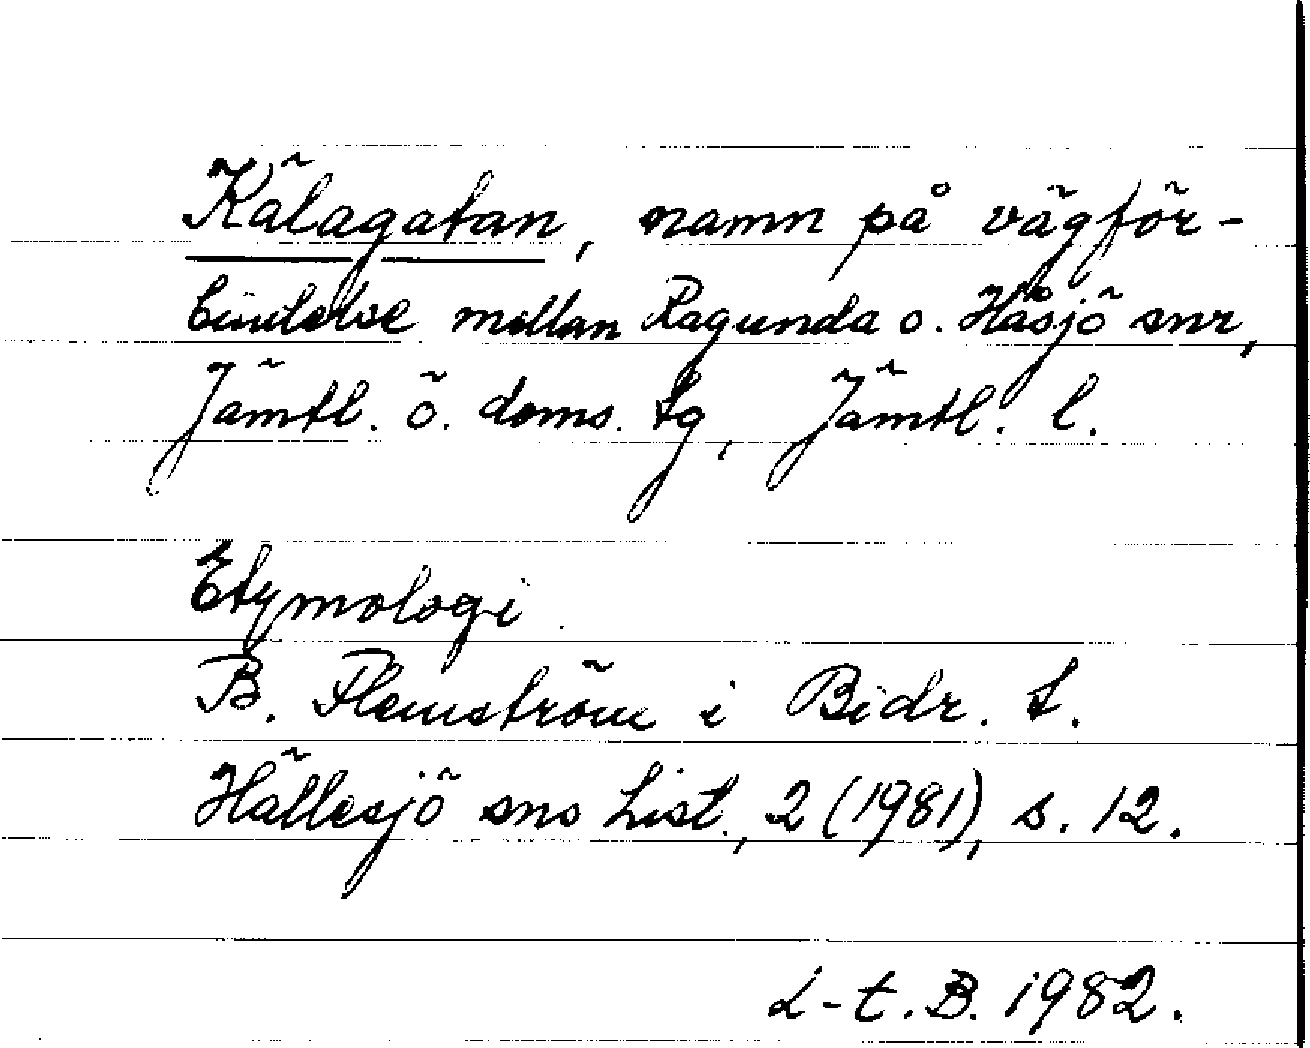 Kälagatan, namn på vägför-
bindelse mellan Ragunda o. Håsjö snr,
Jämtl. ö. doms. tg, Jämtl. l.
Etymologi
B. Flemström i Bidr. t.
Hällesjö sns hist., 2 (1981), s. 12.
L-t. B. 1982.